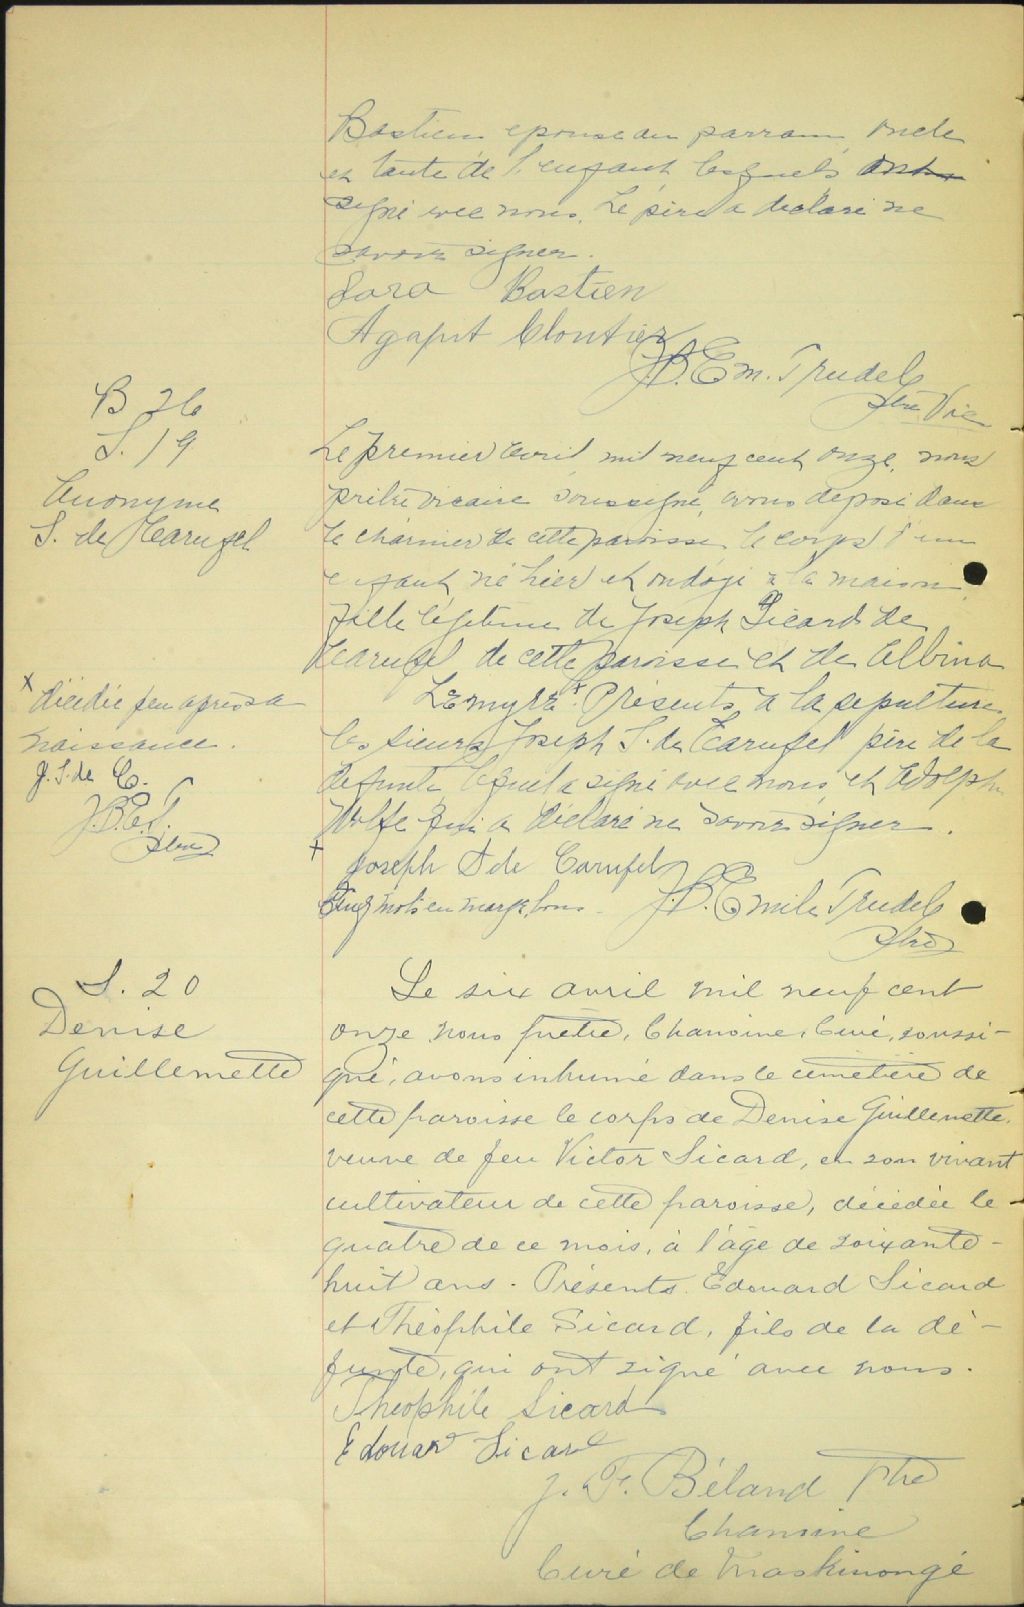 Bastien epouse du parrain, oncle
et tante de l'enfant lesquels ont
signé avec nous. Le père a declaré ne
savoir signer.
Sara Bastien
Agapit Cloutier
J.B. Em. Trudel
Ptre Vic
B 26
S. 19
Anonyme
S. de Carufel
Le premier avril mil neuf cent onze, nous
prêtre vicaire soussigné, avons deposé dans
le charnier de cette paroisse, le corps d'un
enfant, né hier et ondoyé à la maison,
fille légitime de Joseph Sicard de
Carufel de cette paroisse et de Albina
Lemyre x. Présents à la sepulture
les sieurs Joseph S. de Carufel père de la
defunte lequel a signé avec nous, et Adolphe
Wolfe qui a déclaré ne savoir signer.
x décédée peu après sa
naissance.
J. S. de C.
J.B.E.T.
Ptre
x
Joseph S de Carufel
Cinq mots en marge bons.
J.B. Emile Trudel
Ptre
S. 20
Denise
Guillemette
Le six avril mil neuf cent
onze nous prêtre, Chanoine, Curé, soussi-
gné, avons inhumé dans le cimetière de
cette paroisse le corps de Denise Guillemette,
veuve de feu Victor Sicard, en son vivant
cultivateur de cette paroisse, décédée le
quatre de ce mois, à l'âge de soixante-
huit ans. Présents. Edouard Sicard
et Théophile Sicard, fils de la dé-
funte, qui ont signé avec nous.
Theophile Sicard
Edouard Sicard
J. F. Béland Ptre
Chanoine
Curé de Maskinongé